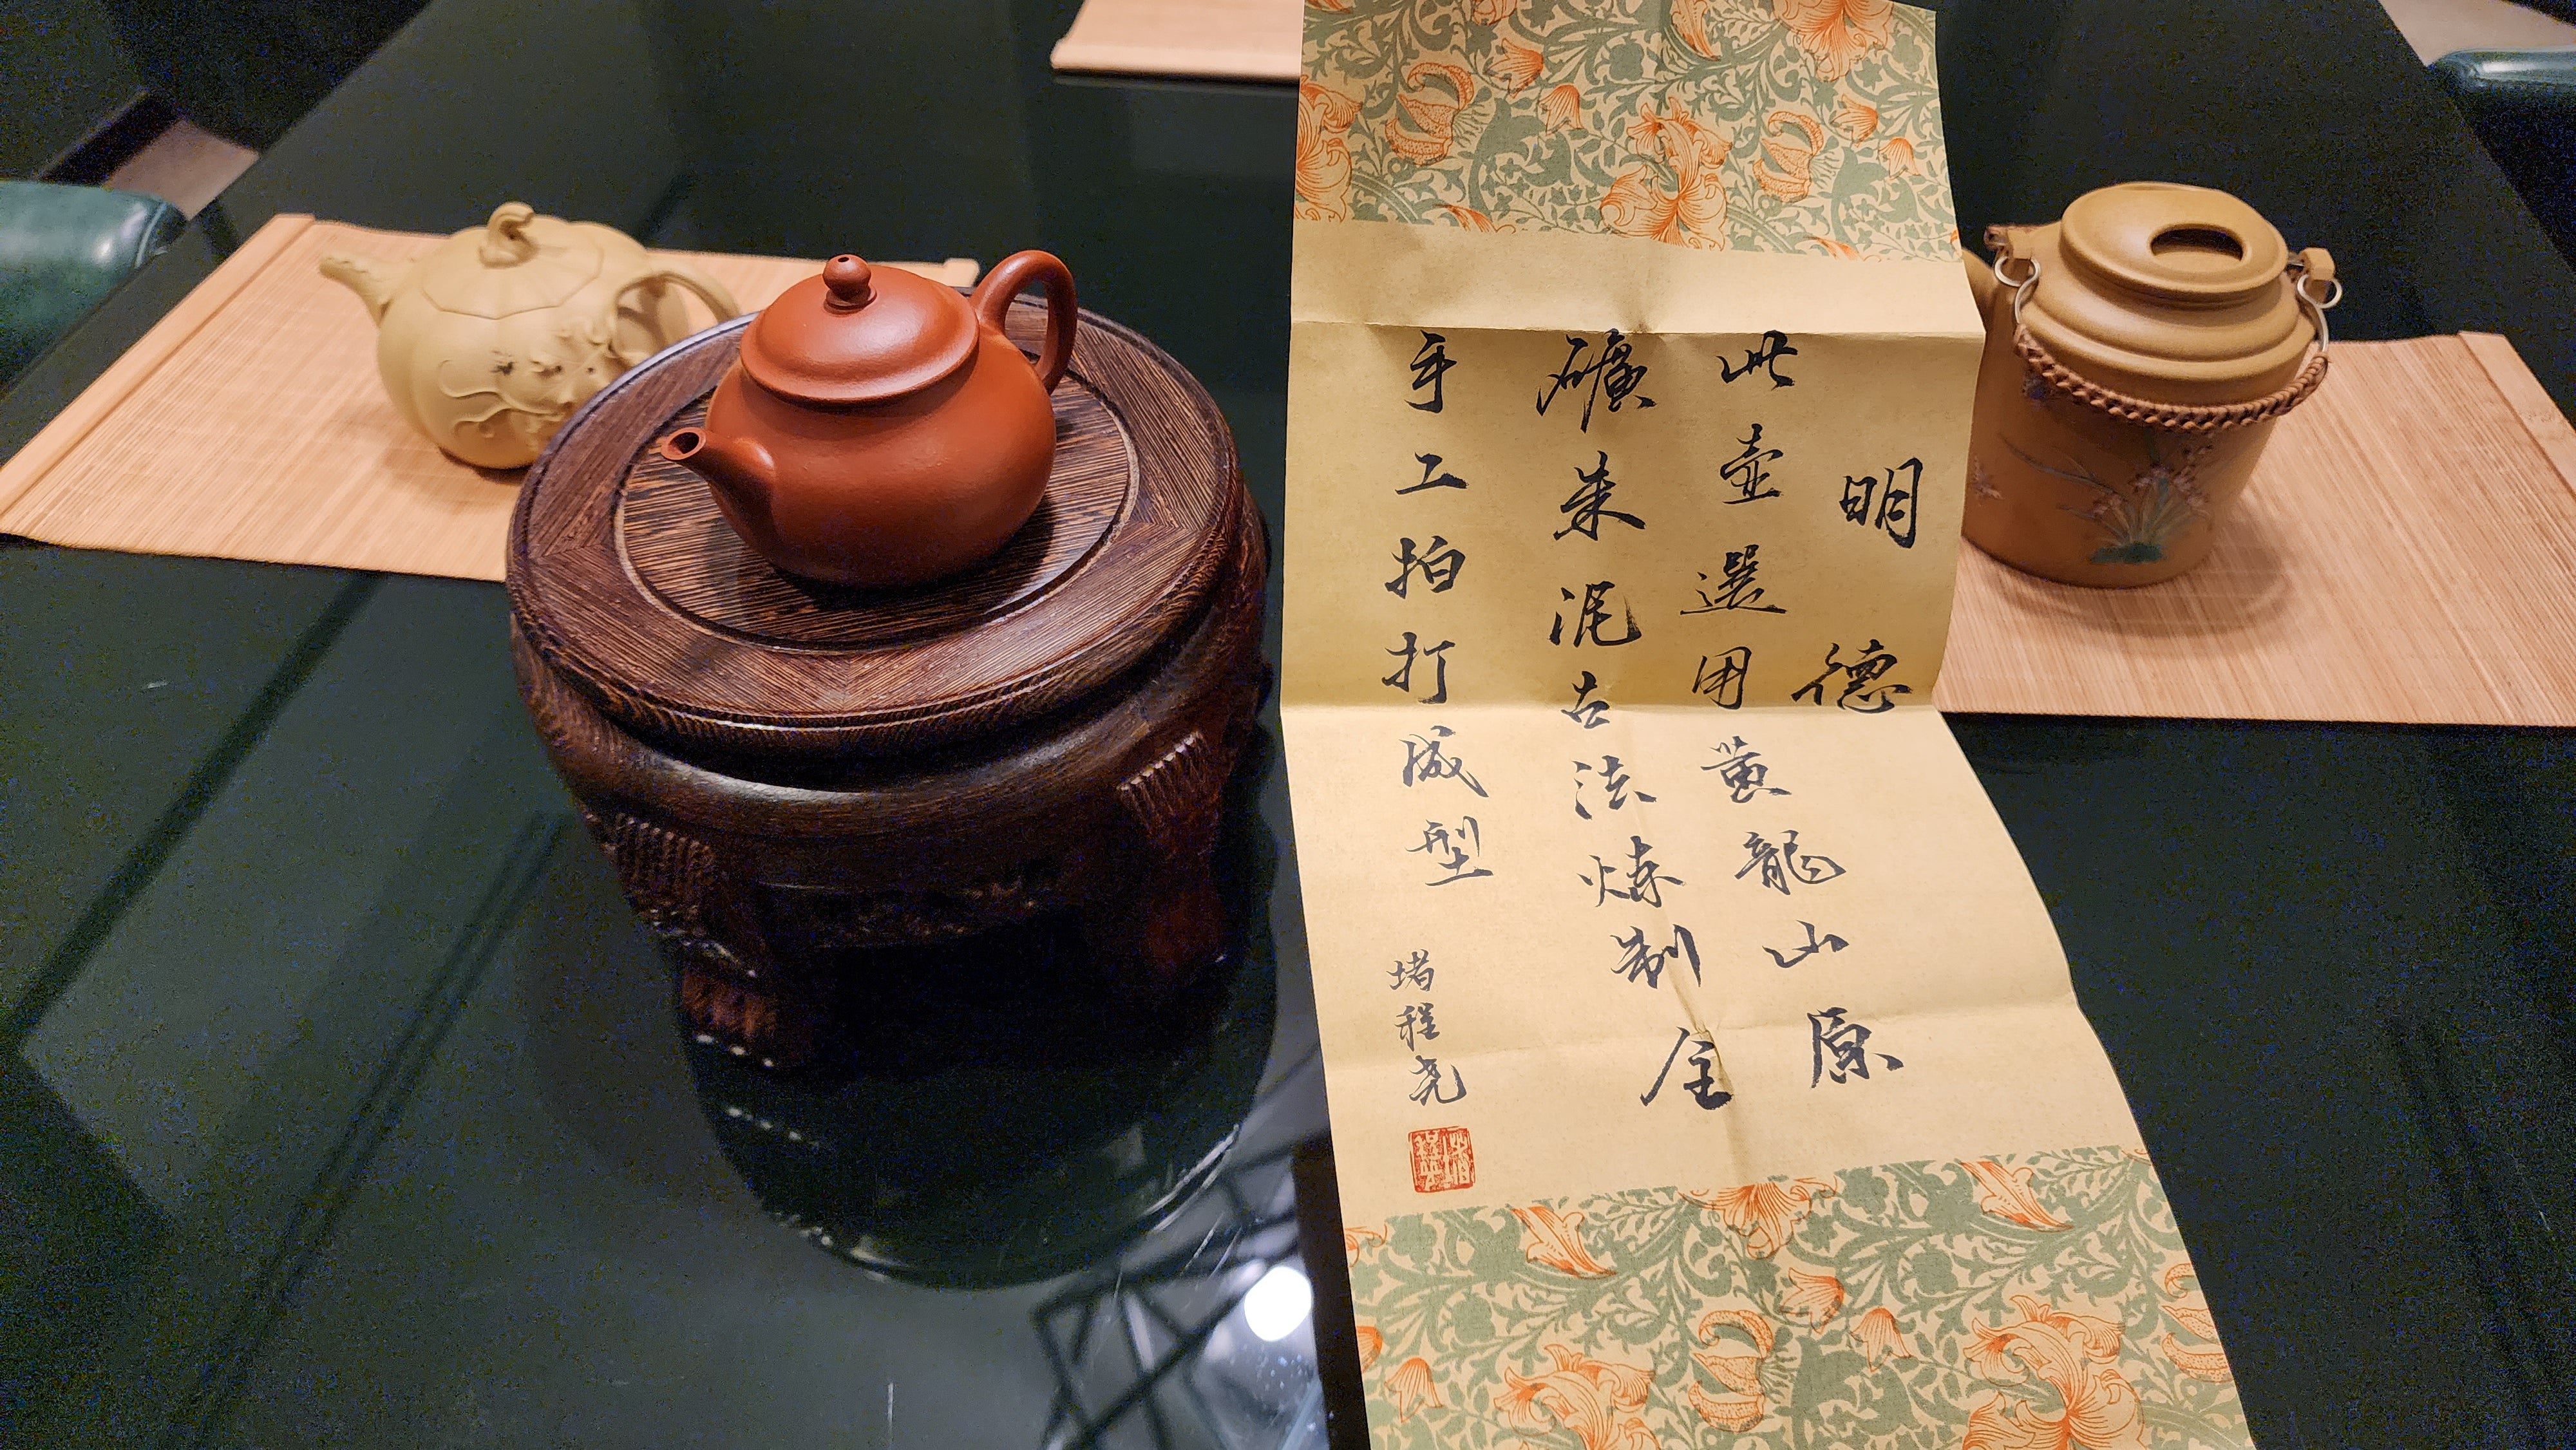 明德
此壺選用黃龍山原
礦朱泥古法煉制全
手工拍打成型
堵程尧